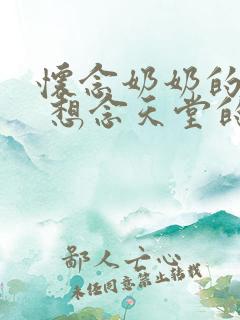 怀念奶奶的
想念天堂的
鄙人亡心
未经同意禁止转载